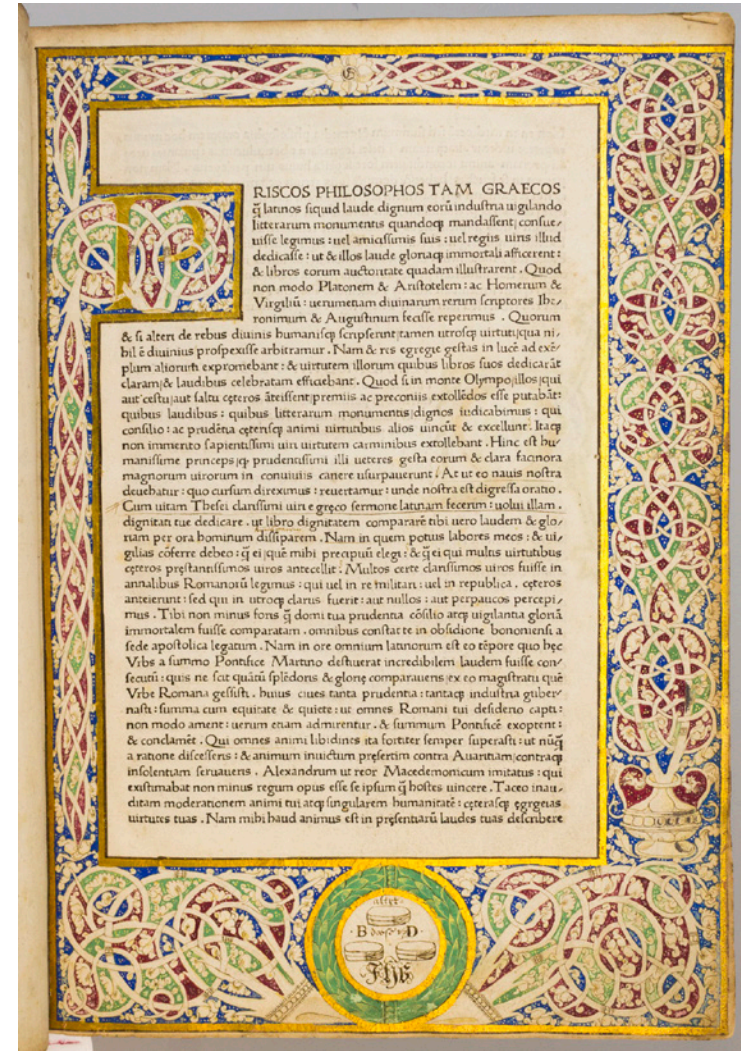 P
RISCOS PHILOSOPHOS TAM GRAECOS
q̄ latinos siquid laude dignum eorū industria uigilando
litterarum monumentis quandoqꝫ mandassent consue/
uisse legimus : uel amicissimis suis : uel regiis uiris illud
dedicasse : ut & illos laude gloriaqꝫ immortali afficerent :
& libros eorum auctoritate quadam illustrarent . Quod
non modo Platonem & Aristotelem : ac Homerum &
Virgiliū : uerumetiam diuinarum rerum scriptores Ihe/
ronimum & Augustinum fecisse reperimus . Quorum
& si alteri de rebus diuinis humanisqꝫ scripserint tamen utrosqꝫ uirtuti qua ni/
hil ē diuinius prospexisse arbitramur . Nam & res egregie gestas in lucē ad exē/
plum aliorum expromebant : & uirtutem illorum quibus libros suos dedicarāt
claram & laudibus celebratam efficiebant . Quod si in monte Olympo illos qui
aut cestu aut saltu cęteros āteissent premiis ac preconiis extollēdos esse putabāt :
quibus laudibus : quibus litterarum monumentis dignos iudicabimus : qui
consilio : ac prudētia cęterisqꝫ animi uirtutibus alios uincūt & excellunt . Itaqꝫ
non immerito sapientissimi uiri uirtutem carminibus extollebant . Hinc est hu/
manissime princeps qꝫ prudentissimi illi ueteres gesta eorum & clara facinora
magnorum uirorum in conuiuiis canere usurpauerunt . At ut eo nauis nostra
deuehatur : quo cursum direximus : reuertamur : unde nostra est digressa oratio .
Cum uitam Thesei clarissimi uiri e gręco sermone latinam fecerim : uolui illam .
dignitati tue dedicare . ut libro dignitatem compararē tibi uero laudem & glo/
riam per ora hominum dissiparem . Nam in quem potius labores meos : & ui/
gilias cōferre debeo : q̄ ei quē mihi precipuū elegi : & q̄ ei qui multis uirtutibus
cęteros pręstantissimos uiros antecellit . Multos certe clarissimos uiros fuisse in
annalibus Romanorū legimus : qui uel in re militari : uel in republica . cęteros
anteierunt : sed qui in utroqꝫ clarus fuerit : aut nullos : aut perpaucos percepi/
mus . Tibi non minus foris q̄ domi tua prudentia cōsilio atqꝫ uigilantia gloriā
immortalem fuisse comparatam . omnibus constat te in obsidione bononiensi a
sede apostolica legatum . Nam in ore omnium latinorum est eo tēpore quo hęc
Vrbs a summo Pontifice Martino destiuerat incredibilem laudem fuisse con/
secutū : quis ne scit quātū splēdoris & glorię comparaueris ex eo magistratu quē
Vrbe Romana gessisti . huius ciues tanta prudentia : tantaqꝫ industria guber/
nasti : summa cum equitate & quiete : ut omnes Romani tui desiderio capti :
non modo ament : uerum etiam admirentur . & summum Pontificē exoptent :
& conclamēt . Qui omnes animi libidines ita fortiter semper superasti : ut nūq̄
a ratione discesseris : & animum inuictum presertim contra Auaritiam contraqꝫ
insolentiam seruaueris . Alexandrum ut reor Macedemonicum imitatus : qui
existimabat non minus regum opus esse se ipsum q̄ hostes uincere . Taceo inau/
ditam moderationem animi tui atqꝫ singularem humanitatē : cęterasqꝫ egregias
uirtutes tuas . Nam mihi haud animus est in pręsentiarū laudes tuas describere
B D